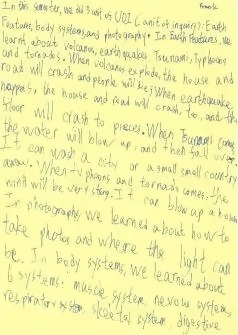 Frank
In this semester, we did 3 unit of UOI (unit of inquiry): Earth
Features, body systems and photography. In Earth Features, we
learnt about volcanos, earthquakes, Tsunami, Typhoons
and tornados. When volcanos explode, the house and
road will crash and people will die; When earthquake
happens, the house and road will crash, too, and the
floor will crash to pieces. When Tsunami comes,
the water will blow up, and then fall over,
It can wash a city or a small small country
away. When typhoons and tornado comes, the
wind will be very strong. It can blow up a house
In photography we learned about how to
take photos and where the light can
be. In body systems, we learned about
6 systems: muscle system, nervous system,
respiratory system, skeletal system, digestive